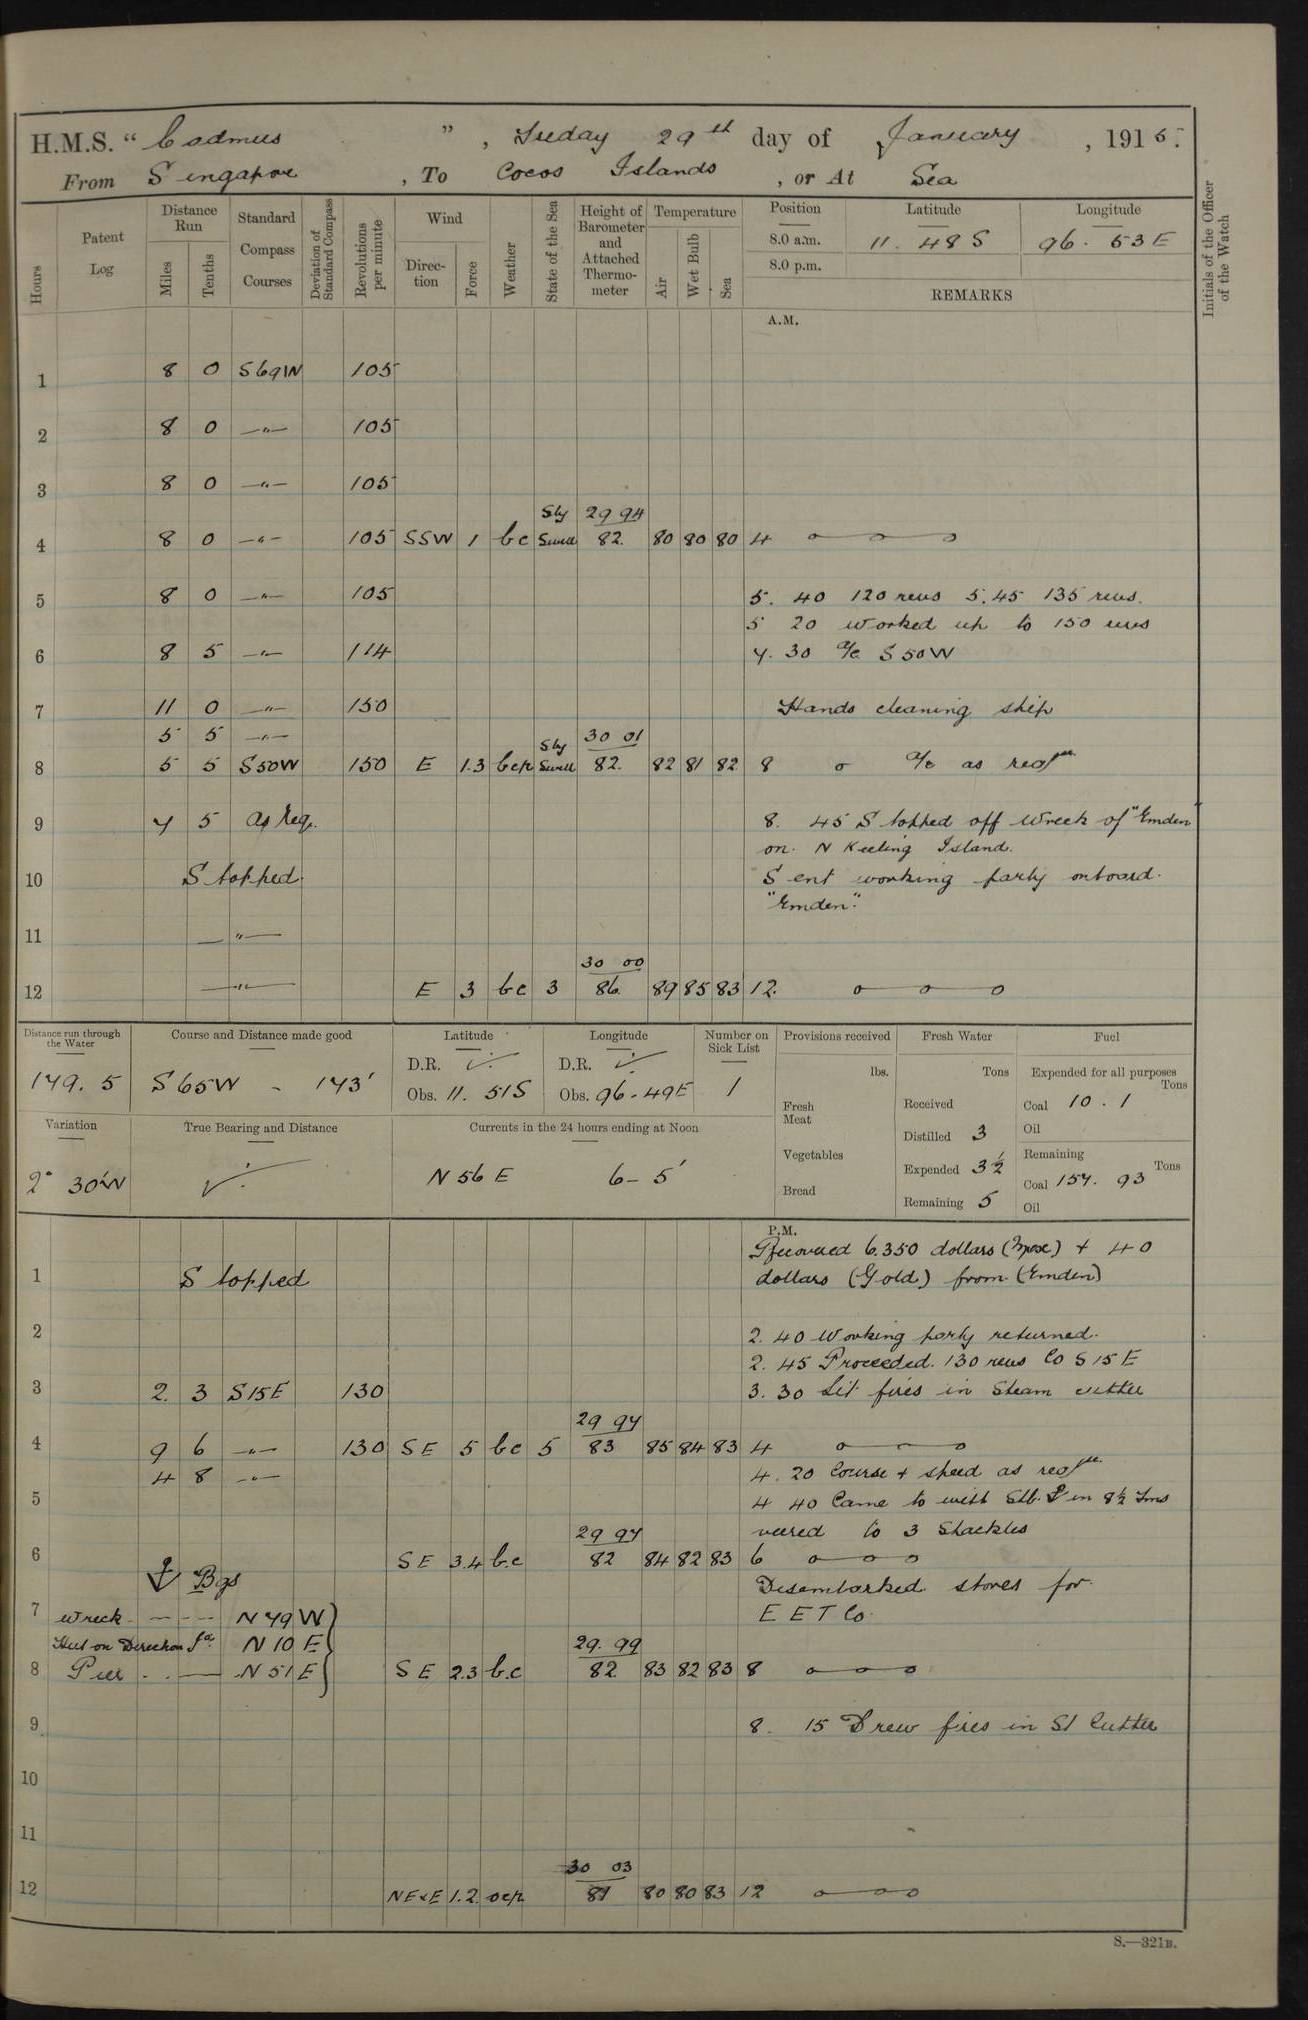 H.M.S. " Cadmus ", Friday 29th day of January, 1915.
From Singapore, To Cocos Islands, or At Sea
Hours
Patent Log
Distance Run
Miles
Tenths
Standard Compass Courses
Deviation of Standard Compass
Revolutions per minute
Wind
Direction
Force
Weather
State of the Sea
Height of Barometer and Attached Thermometer
Temperature
Air
Wet Bulb
Sea
Position Latitude Longitude
8.0 a.m. 11. 48 S 96. 53 E
8.0 p.m.
REMARKS
Initials of the Officer of the Watch
A.M.
1 8 0 S69W 105
2 8 0 —"— 105
3 8 0 —"— 105
Sly 29 94
4 8 0 —"— 105 SSW 1 bc Swell 82. 80 80 80 4
5 8 0 —"— 105 5. 40 120 revs 5.45 135 revs.
5 20 worked up to 150 revs
6 8 5 —"— 114 7. 30 a/c S50W
7 11 0 —"— 150 Hands cleaning ship
5 5 —"— Sly 30 01
8 5 5 S50W 150 E 1.3 bcp Swell 82. 82 81 82 8 a/c as reqd
9 7 5 As Req. 8. 45 Stopped off Wreck of "Emden"
on N Keeling Island.
10 Stopped. Sent working party onboard.
"Emden".
11 —"—
30 00
12 —"— E 3 bc 3 86. 89 85 83 12.
Distance run through the Water
Course and Distance made good
Latitude
Longitude
Number on Sick List
Provisions received
Fresh Water
Fuel
179. 5 S65W - 173'
D.R. D.R.
Obs. 11. 51S Obs. 96-49E 1
lbs.
Fresh Meat
Vegetables
Bread
Tons
Received
Distilled 3
Expended 3½
Remaining 5
Expended for all purposes
Tons
Coal 10. 1
Oil
Remaining
Tons
Coal 157. 93
Oil
Variation
True Bearing and Distance
Currents in the 24 hours ending at Noon
2° 30'W N 56 E 6-5'
P.M.
Recovered 6.350 dollars (Mex) + 40
1 Stopped dollars (Gold) from (Emden)
2 2. 40 Working party returned.
2. 45 Proceeded. 130 revs Co S15E
3 2. 3 S15E 130 3. 30 Lit fires in Steam cutter
29 97
4 9 6 —"— 130 SE 5 bc 5 83 85 84 83 4
4 8 —"— 4. 20 Course + speed as reqd
5 4 40 Came to with Stb. ⚓ in 8½ fms
29 97 veered to 3 Shackles
6 SE 3.4 b.c 82 84 82 83 6
⚓ Bgs Disembarked stores for
7 Wreck - - - N 79 W E E T Co.
Hut on Direction Id. N 10 E 29. 99
8 Pier - - - N 51 E SE 2.3 b.c 82 83 82 83 8
9 8. 15 Drew fires in St Cutter
10
11
30 03
12 NE×E 1.2. ocp 81 80 80 83 12
S.—321B.